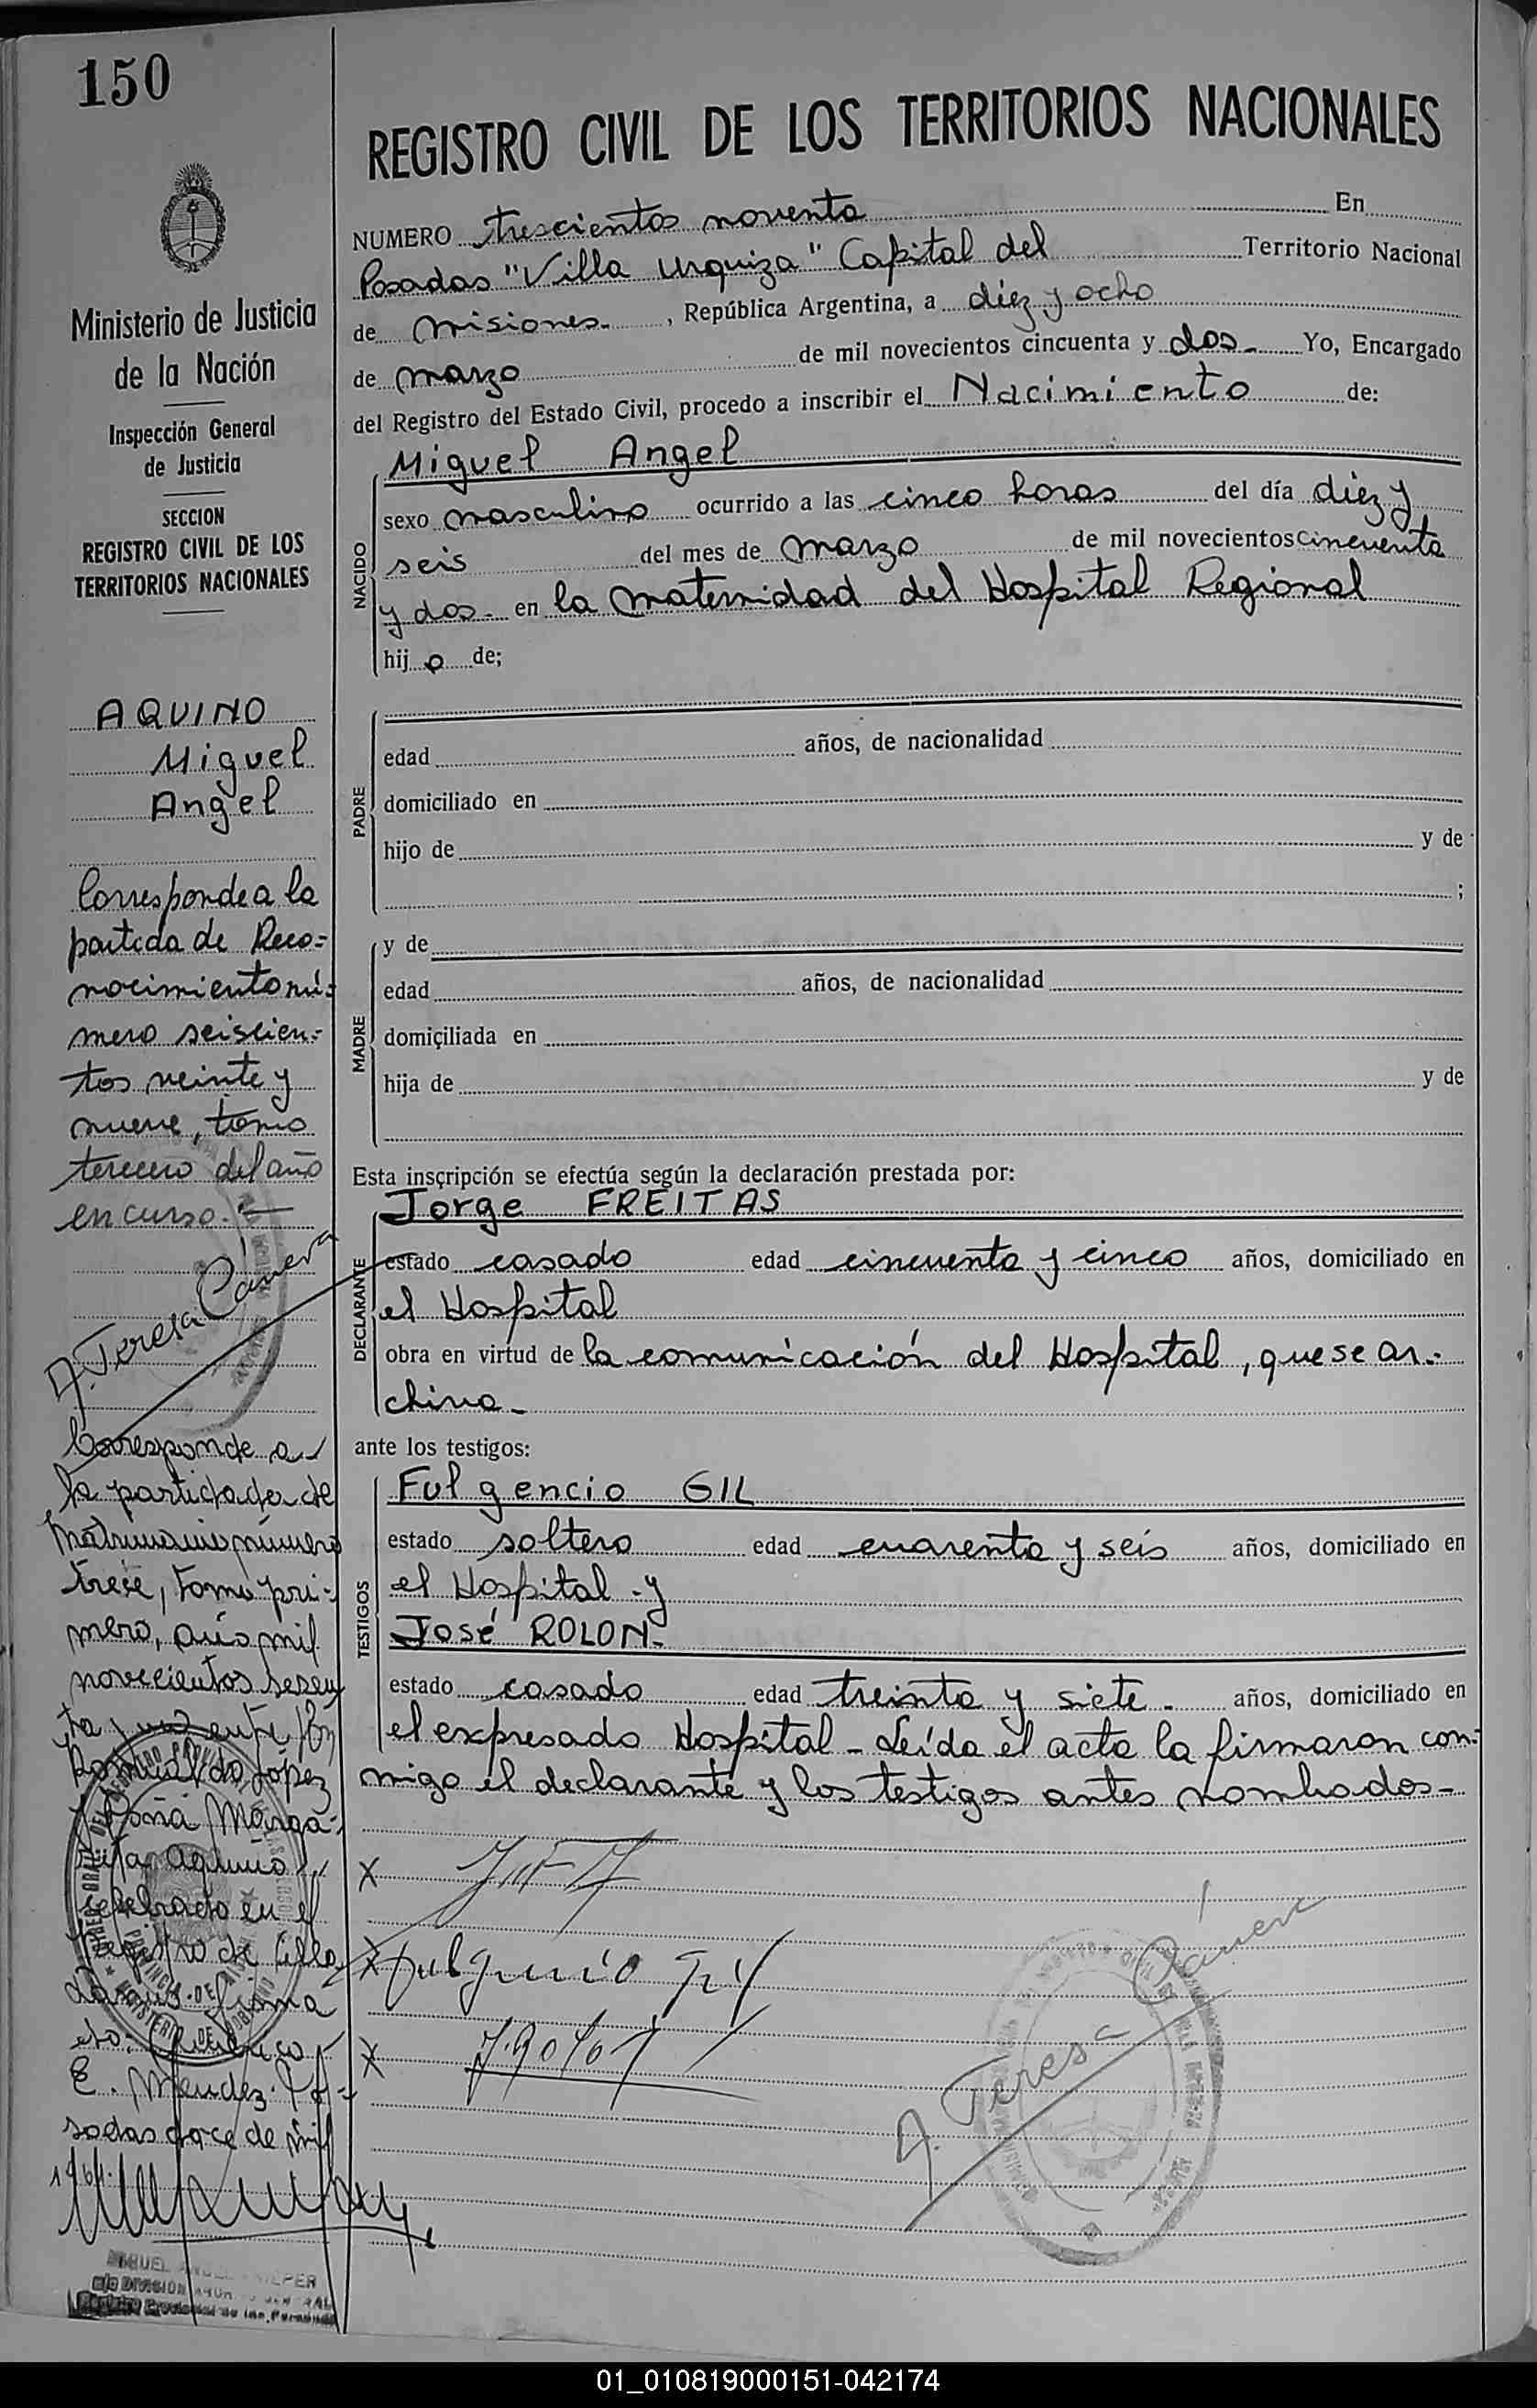 150
REGISTRO CIVIL DE LOS TERRITORIOS NACIONALES
Ministerio de Justicia
de la Nación
Inspección General
de Justicia
SECCION
REGISTRO CIVIL DE LOS
TERRITORIOS NACIONALES
AQUINO
Miguel
Angel
Corresponde a la
partida de Reco=
nocimiento nú=
mero seiscien=
tos veinte y
nueve, tomo
tercero del año
en curso.-
A. Teresa
Corresponde a
la partida de
matrimonio número
trece, tomo pri-
mero, año mil
novecientos sesen
ta
Romualdo López
y Doña Marga-
rita Aquino
celebrado en el
Registro de Villa
firma
E. Mendez. Po-
sadas doce de
NUMERO trescientos noventa En
Posadas "Villa Urquiza" Capital del Territorio Nacional
de Misiones- , República Argentina, a diez y ocho
de marzo de mil novecientos cincuenta y dos- Yo, Encargado
del Registro del Estado Civil, procedo a inscribir el Nacimiento de:
Miguel Angel
NACIDO
sexo masculino ocurrido a las cinco horas del día diez y
seis del mes de marzo de mil novecientos cincuenta
y dos- en la maternidad del Hospital Regional
hijo de;
PADRE
edad años, de nacionalidad
domiciliado en
hijo de y de
;
MADRE
y de
edad años, de nacionalidad
domiciliada en
hija de y de
Esta inscripción se efectúa según la declaración prestada por:
DECLARANTE
Jorge FREITAS
estado casado edad cincuenta y cinco años, domiciliado en
el Hospital
obra en virtud de la comunicación del Hospital, que se ar.-
chiva-
ante los testigos:
TESTIGOS
Fulgencio GIL
estado soltero edad cuarenta y seis años, domiciliado en
el Hospital -y
José ROLON-
estado casado edad treinta y siete- años, domiciliado en
el expresado Hospital - Leída el acta la firmaron con-
migo el declarante y los testigos antes nombrados-
X
X Fulgencio Gil
X
A. Teresa
01_010819000151-042174